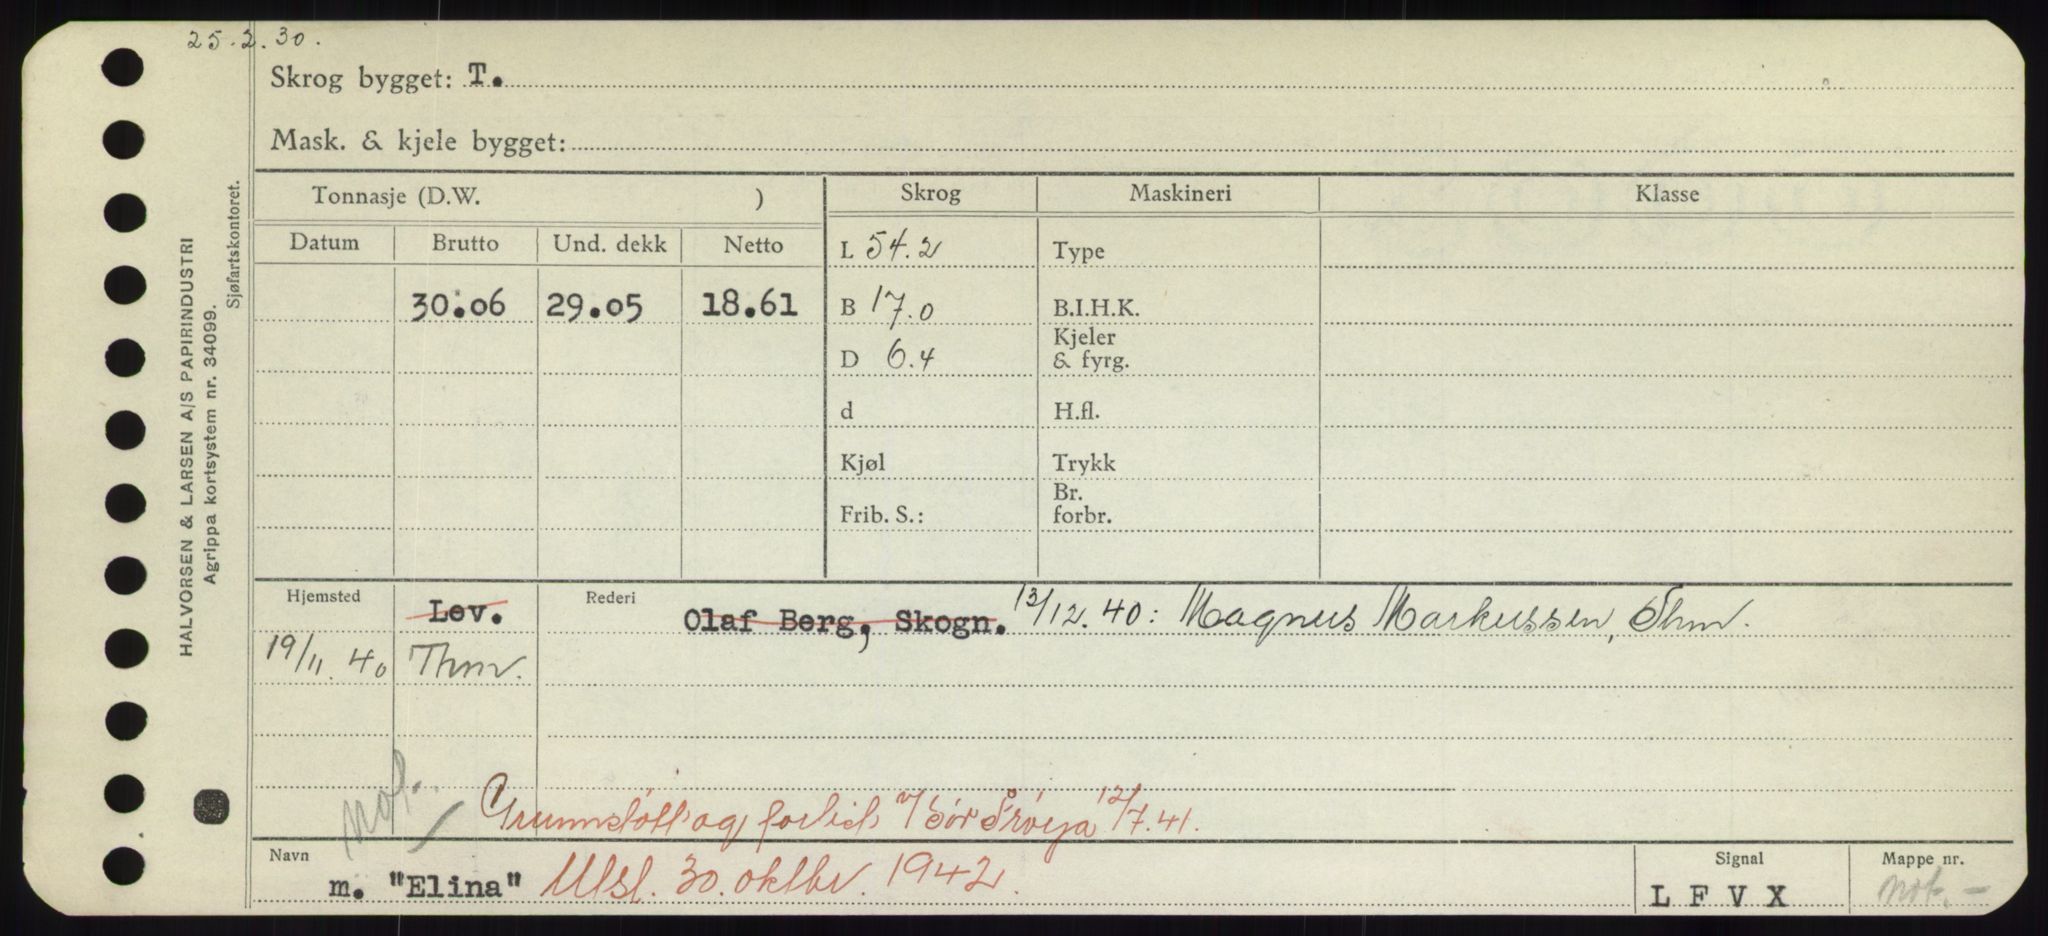 25.2.30.
Skrog bygget: T.
Mask. & kjele bygget:
Tonnasje (D.W. ) Skrog Maskineri Klasse
Datum Brutto Und. dekk Netto L 54.2 Type
30.06 29.05 18.61 B 17.0 B.I.H.K.
D 6.4 Kjeler & fyrg.
d H.fl.
Kjøl Trykk
Frib. S.: Br. forbr.
Hjemsted Lev. Rederi Olaf Berg, Skogn. 13/12.40: Magnus Markussen, Thm.
19/11.40 Thm.
not.
Grunnstøtt og forlist v/ Sør Frøya 12/7.41.
Navn m. "Elina" Utsl. 30. oktbr. 1942.
Signal L F V X
Mappe nr. not. -
HALVORSEN & LARSEN A/S PAPIRINDUSTRI
Agrippa kortsystem nr. 34099.
Sjøfartskontoret.